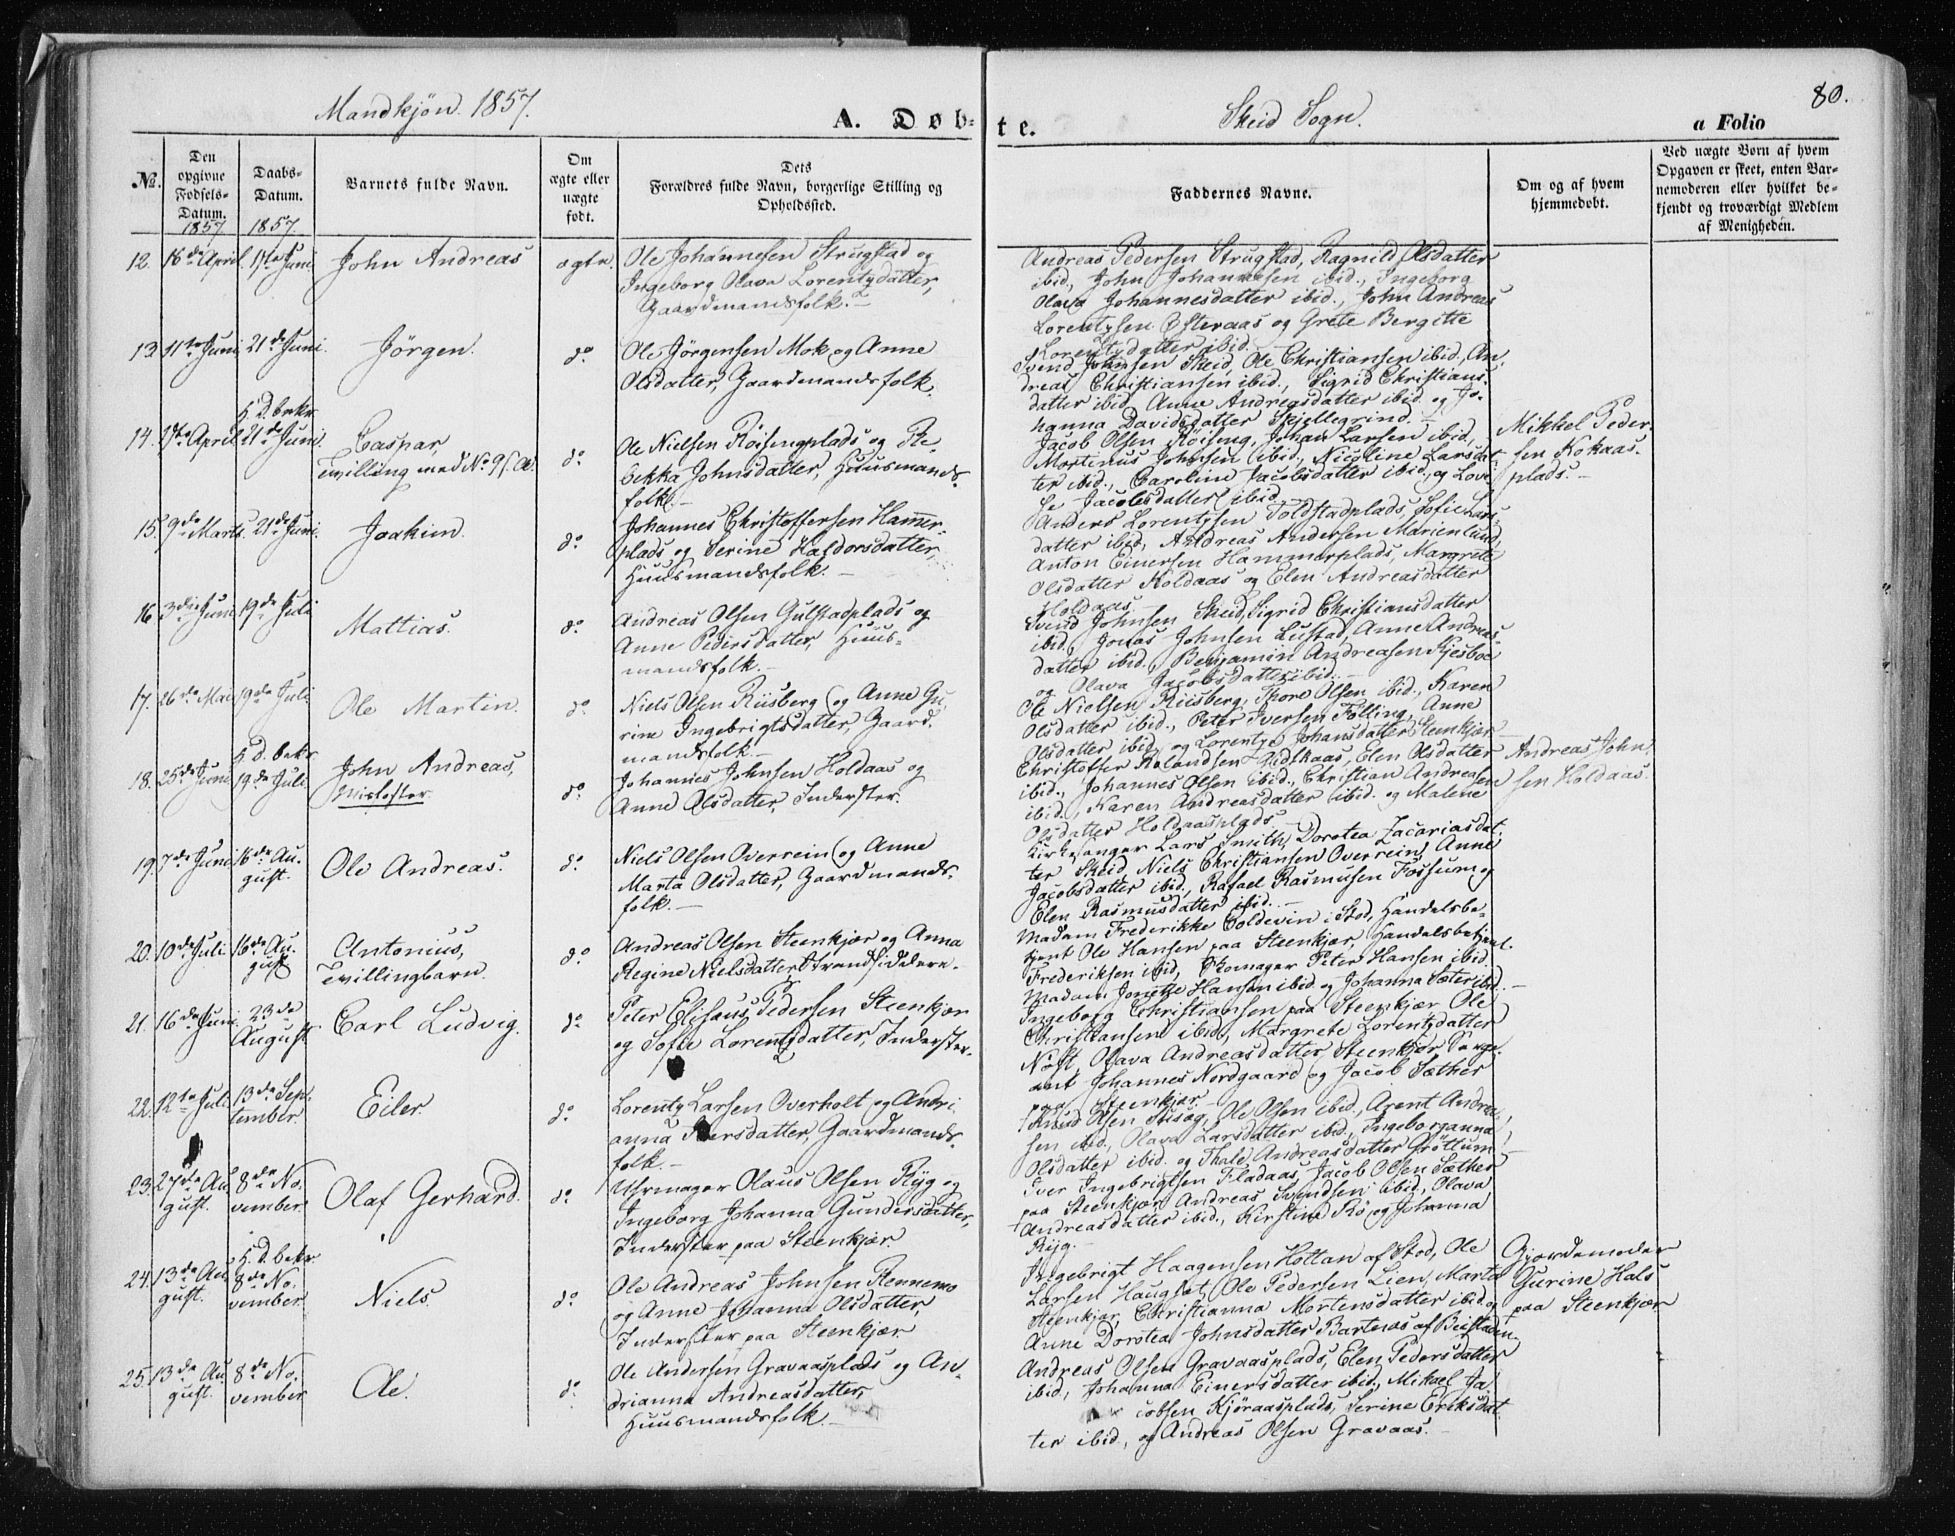 Mandkjøn. 1857.
A. Døb-
te.
Skeid Sogn.
80.
a Folio
No.
Den
opgivne
Fødsels-
Datum.
1857
Daabs-
Datum.
1857.
Barnets fulde Navn.
Om
ægte eller
uægte
født.
Dets
Forældres fulde Navn, borgerlige Stilling og
Opholdssted.
Faddernes Navne.
Om og af hvem
hjemmedøbt.
Ved uægte Børn af hvem
Opgaven er skeet, enten Bar-
nemoderen eller hvilket be-
kjendt og troværdigt Medlem
af Menigheden.
12.
16de April
1ste Juni
John Andreas
ægte.
Ole Johannesen Strugstad og
Ingeborg Olava Lorentzdatter,
Gaardmandsfolk.
Andreas Pedersen Strugstad, Ragnild Olsdatter
ibid, John Johannesen ibid., Ingeborg
Olava Johannesdatter ibid., John Andreas
Lorentzsen Østeraas og Grete Bergitte
Lorentzdatter ibid.
13.
11te Juni
21de Juni.
Jörgen.
do
Ole Jörgensen Mok og Anne
Olsdatter, Gaardmandsfolk.
Svend Johnsen Skeid, Ole Christiansen ibid., An-
dreas Christiansen ibid., Sigrid Christians-
datter ibid, Anne Andreasdatter ibid. og Jo-
hanna Davidsdatter Skjellegrind.
14.
27de April
H. D. bekr.
21de Juni.
Caspar,
Tvilling med No 9, f. Q.
do
Ole Nielsen Röisengplads og Re-
bekka Johnsdatter, Huusmands-
folk.
Jacob Olsen Röiseng, Johan Larsen ibid,
Martinus Johnsen ibid., Nicoline Larsdat-
ter ibid., Caroline Jacobsdatter ibid., og Lovi-
se Jacobsdatter ibid.
Mikkel Peder-
sen Kokaas-
plads.
15.
9de Marts.
21de Juni.
Joakim.
do
Johannes Christoffersen Hammer-
plads og Serine Haldorsdatter,
Huusmandsfolk.
Anders Lorentzsen Toldstadplads, Sofie Lars-
datter ibid, Andreas Andersen Marienlund,
Anton Einersen Hammerplads, Margrete
Olsdatter Holdaas og Elen Andreasdatter
Holdaas
16
3die Juni
19de Juli
Mattias.
do
Andreas Olsen Gulstadplads og
Anne Pedersdatter, Huus-
mandsfolk.
Svend Johnsen Skeid, Sigrid Christiansdatter
ibid., Jonas Johnsen Lustad, Anne Andreas-
datter ibid., Benjamin Andreasen Kjesboe
og Olava Jacobsdatter ibid.
17.
26de Mai
19de Juli
Ole Martin.
do
Niels Olsen Riisberg og Anne Gu-
rine Ingebrigtsdatter, Gaard-
mandsfolk.
Ole Nielsen Riisberg, Thore Olsen ibid., Karen
Olsdatter ibid., Peter Iversen Fölling, Anne
Olsdatter ibid. og Lorentze Johansdatter Steenkjær
18.
25de Juni
H. D. bekr
19de Juli
John Andreas,
do
Johannes Johnsen Holdaas og
Anne Olsdatter, Inderster.
Christoffer Rolandsen Lidskaas, Elen Olsdatter
ibid., Johannes Olsen ibid., Christian Andreasen
ibid., Karen Andreasdatter ibid. og Malene
Olsdatter Holdaasplads
Andreas John-
sen Holdaas.
19.
7de Juni
16de Au-
gust.
Ole Andreas.
do
Niels Olsen Overrein og Anne
Marta Olsdatter, Gaardmands-
folk.
Kirkesanger Lars Smith, Dorotea Zacariasdat-
ter Skeid, Niels Christiansen Overrein, Anne
Jacobsdatter ibid., Rafael Rasmusen Fossum og
Elen Rasmusdatter ibid.
20.
10de Juli
16de Au-
gust
Antonius,
Tvillingbarn.
do
Andreas Olsen Steenkjær og Anna
Regine Nielsdatter Strandsiddere.
Madam Frederikke Coldevin i Stod, Handelsbe-
tjent Ole Hansen paa Steenkjær, Handelsbetjent
Frederiksen ibid, Skomager Peter Hansen ibid.
Madam Jonette Hansen ibid. og Johanna Sæter ibid.
21.
16de Juni
23de
August
Carl Ludvig.
do
Peter Elisæus Pedersen Steenkjær
og Sofie Lorentzdatter, Inderster.
Ingeborg Christiansen paa Steenkjær, Ole
Christiansen ibid., Margrete Lorentzdatter
Nöst, Olava Andreasdatter, Steenkjær Serge-
ant Johannes Nordgaard og Jacob Sæther
paa Steenkjær
22.
12te Juli
13de Sep-
tember.
Eiler
do
Lorentz Larsen Overholt og Andri-
anna Iversdatter, Gaardmands-
folk.
Knud Olsen Skisæg, Ole Olsen ibid., Arent Andrea-
sen ibid., Olava Larsdatter ibid., Ingeborganna
Olsdatter ibid. og Thale Andreasdatter Gröttum
23.
27de Au-
gust.
8de No-
vember.
Olaf Gerhard.
do
Uhrmager Olaus Olsen Ryg og
Ingeborg Johanna Gundersdatter,
Inderster paa Steenkjær.
Iver Ingebrigtsen Fladaas, Jacob Olsen Sæther
paa Steenkjær, Andreas Svendsen ibid., Olava
Andreasdatter ibid., Kirstine Rö og Johanna
Ryg.
24.
13de Au-
gust.
H. D. bekr.
8de No-
vember.
Niels
do
Ole Andreas Johnsen Rennemo
og Anne Johanna Olsdatter
Inderster paa Steenkjær
Ingebrigt Haagensen Hottan af Stod, Ole
Larsen Haugset, Ole Pedersen Lien, Marta
Steenkjær, Christianna Mortensdatter ibid. og
Anne Dorotea Johnsdatter Bartnæs af Beitstaden.
Gjordemoder
Gurine Hals
paa Steenkjær
25.
13de Au-
gust.
8de No-
vember
Ole.
do
Ole Andersen Gravaasplads og An-
drianna Andreasdatter,
Huusmandsfolk.
Andreas Olsen Gravaasplads, Elen Pedersdatter
ibid, Johanna Einersdatter ibid., Mikael Ja-
cobsen Kjöraasplads, Serine Eriksdat-
ter ibid., og Andreas Olsen Gravaas.